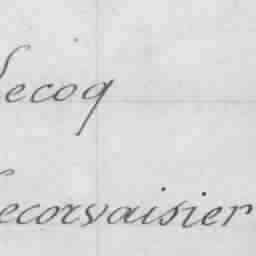 Lecoq
Lecorvaisier